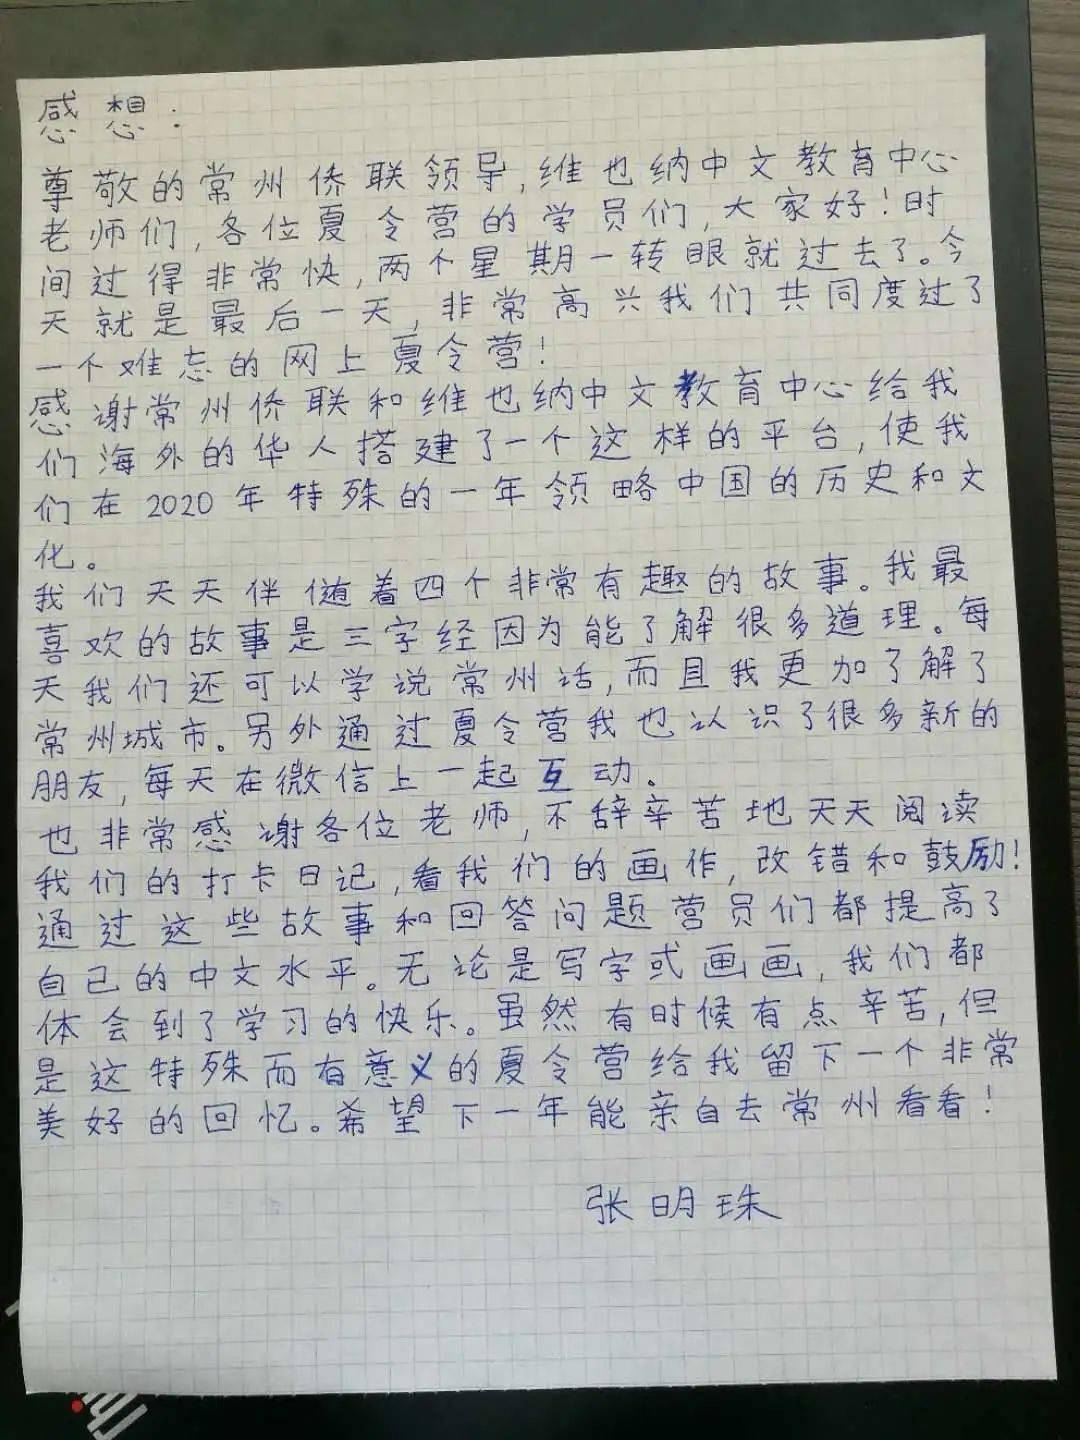 感想:
尊敬的常州侨联领导,维也纳中文教育中心
老师们,各位夏令营的学员们,大家好!时
间过得非常快,两个星期一转眼就过去了。今
天就是最后一天,非常高兴我们共同度过了
一个难忘的网上夏令营!
感谢常州侨联和维也纳中文教育中心给我
们海外的华人搭建了一个这样的平台,使我
们在2020年特殊的一年领略中国的历史和文
化。
我们天天伴随着四个非常有趣的故事。我最
喜欢的故事是三字经因为能了解很多道理。每
天我们还可以学说常州话,而且我更加了解了
常州城市。另外通过夏令营我也认识了很多新的
朋友,每天在微信上一起互动。
也非常感谢各位老师,不辞辛苦地天天阅读
我们的打卡日记,看我们的画作,改错和鼓励!
通过这些故事和回答问题营员们都提高了
自己的中文水平。无论是写字或画画,我们都
体会到了学习的快乐。虽然有时候有点辛苦,但
是这特殊而有意义的夏令营给我留下一个非常
美好的回忆。希望下一年能亲自去常州看看!
张明珠